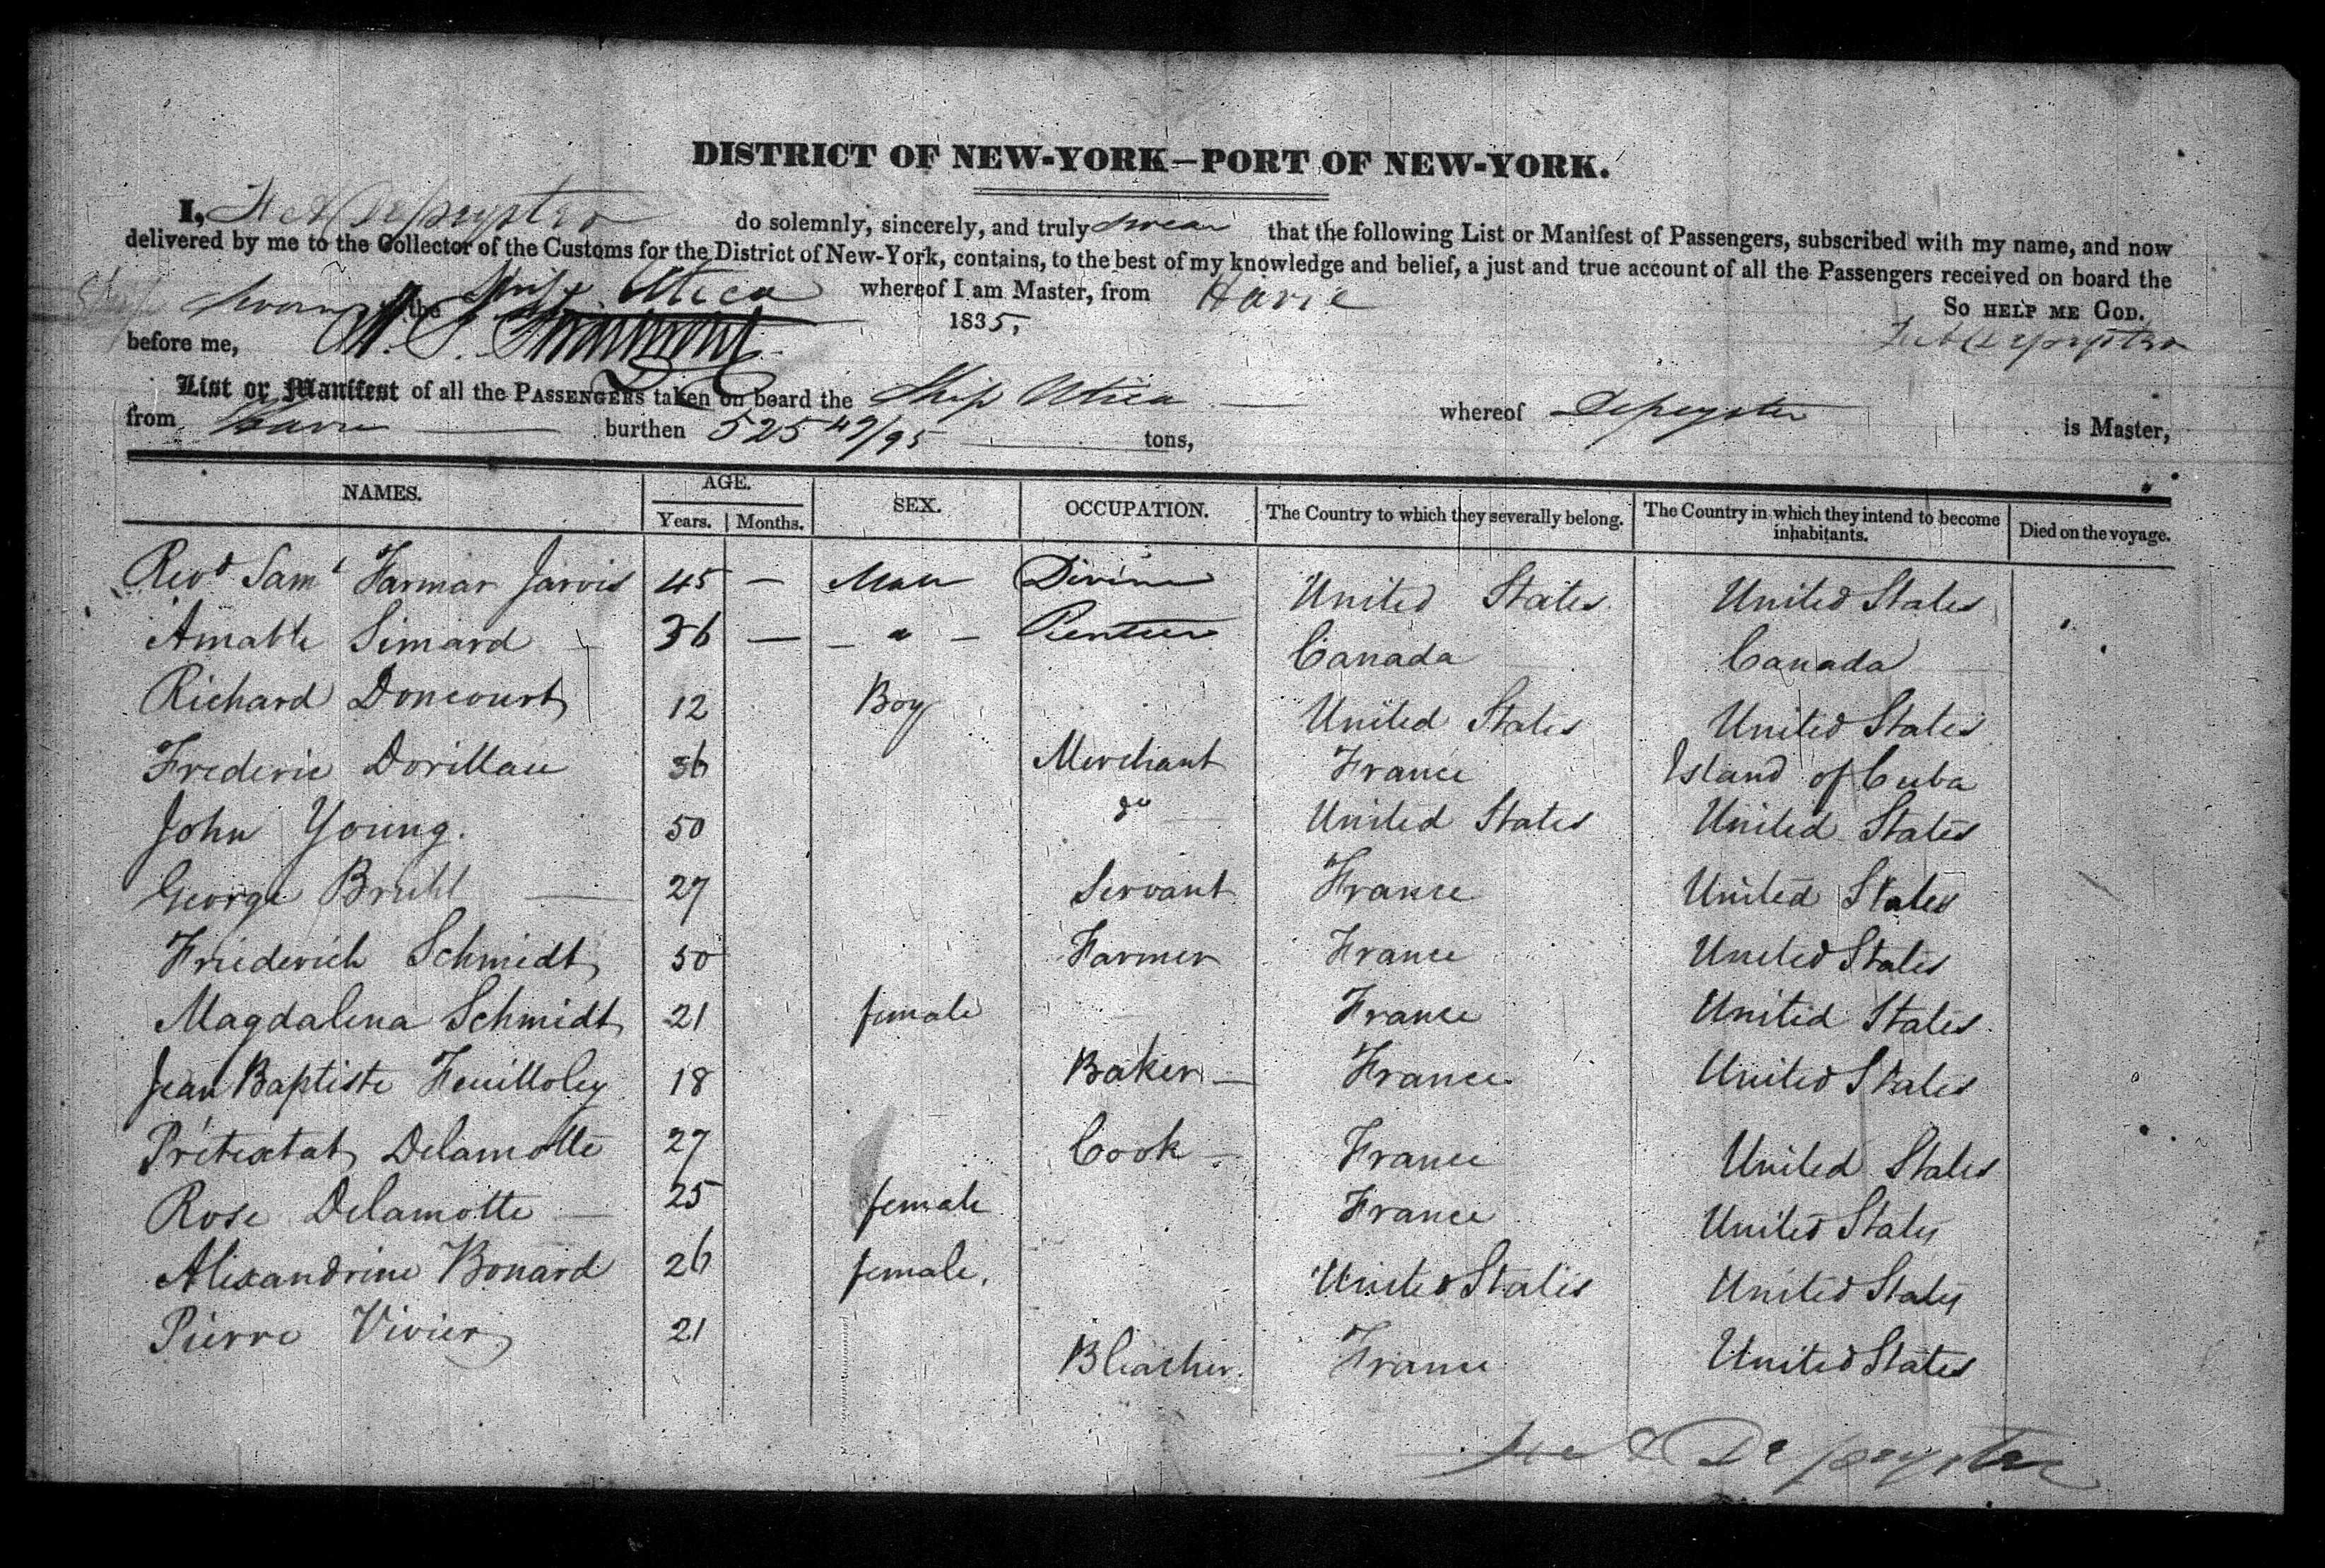 DISTRICT OF NEW-YORK—PORT OF NEW-YORK.
I, Depeyster do solemnly, sincerely, and truly swear that the following List or Manifest of Passengers, subscribed with my name, and now
delivered by me to the Collector of the Customs for the District of New-York, contains, to the best of my knowledge and belief, a just and true account of all the Passengers received on board the
Ship Utica whereof I am Master, from Havre
Sworn the 1835, So HELP ME GOD.
before me, Depeyster
List or Manifest of all the PASSENGERS taken on board the Ship Utica whereof Depeyster is Master,
from Havre burthen 525 47/95 tons,
NAMES. AGE. SEX. OCCUPATION. The Country to which they severally belong. The Country in which they intend to become inhabitants. Died on the voyage.
Years. Months.
Revd Saml Farmar Jarvis 45 — Male Divine United States United States
Amable Simard 36 — — " — Rentier Canada Canada
Richard Doncourt 12 Boy United States United States
Frederic Dorillau 36 Merchant France Island of Cuba
John Young. 50 do United States United States
George Bruhl 27 Servant France United States
Friederich Schmidt 50 Farmer France United States
Magdalena Schmidt 21 female France United States
Jean Baptiste Feuilloley 18 Baker — France United States
Prétextat Delamotte 27 Cook — France United States
Rose Delamotte — 25 female France United States
Alexandrine Bonard 26 female. United States United States
Pierre Vivier 21 Bleacher. France United States
Depeyster